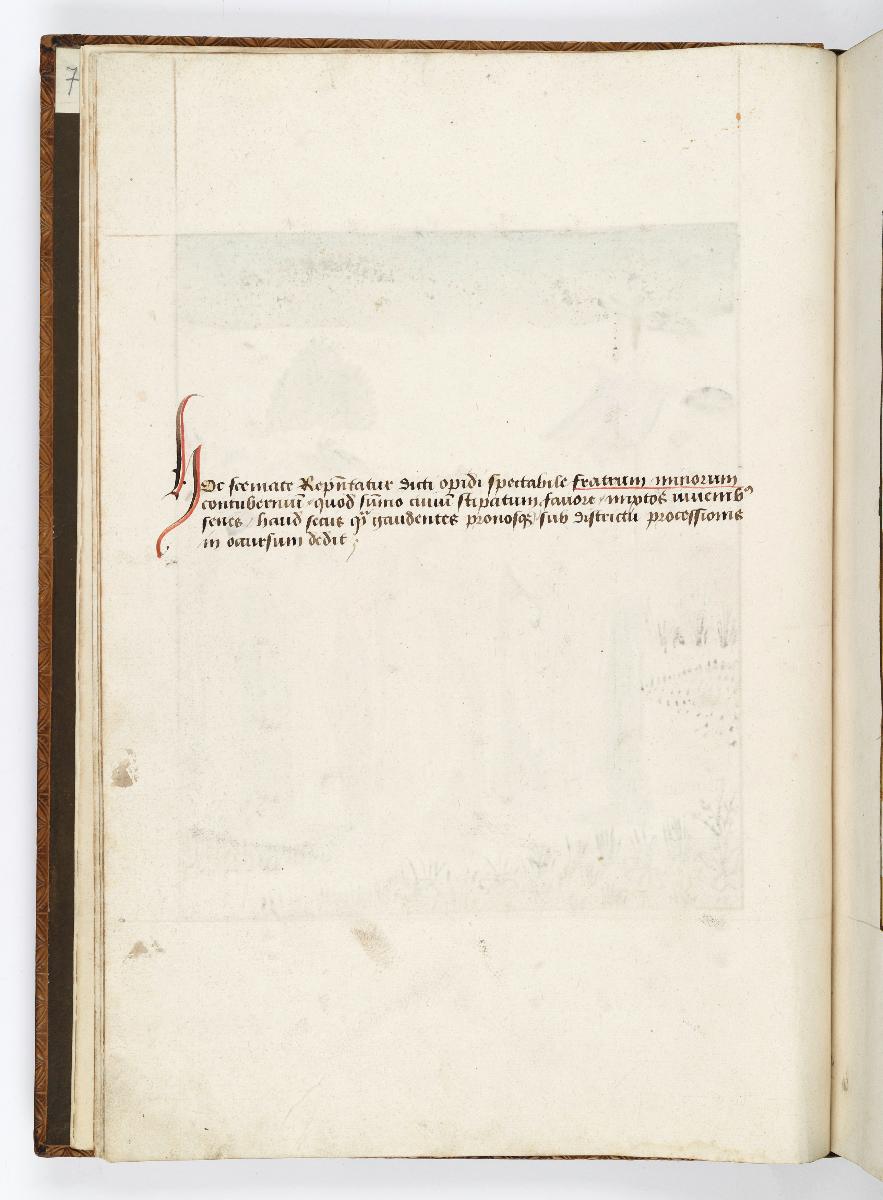 7
Hoc scemate Rep̄ntatur dicti opidi spectabile fratrum minorum
contuberniū / quod sūmo ciuiū stipatum fauore / inuptos iuuenibꝯ
senes / haud secus qͣ gaudentes pronosqꝫ sub districtu processionis
in occursum dedit ;